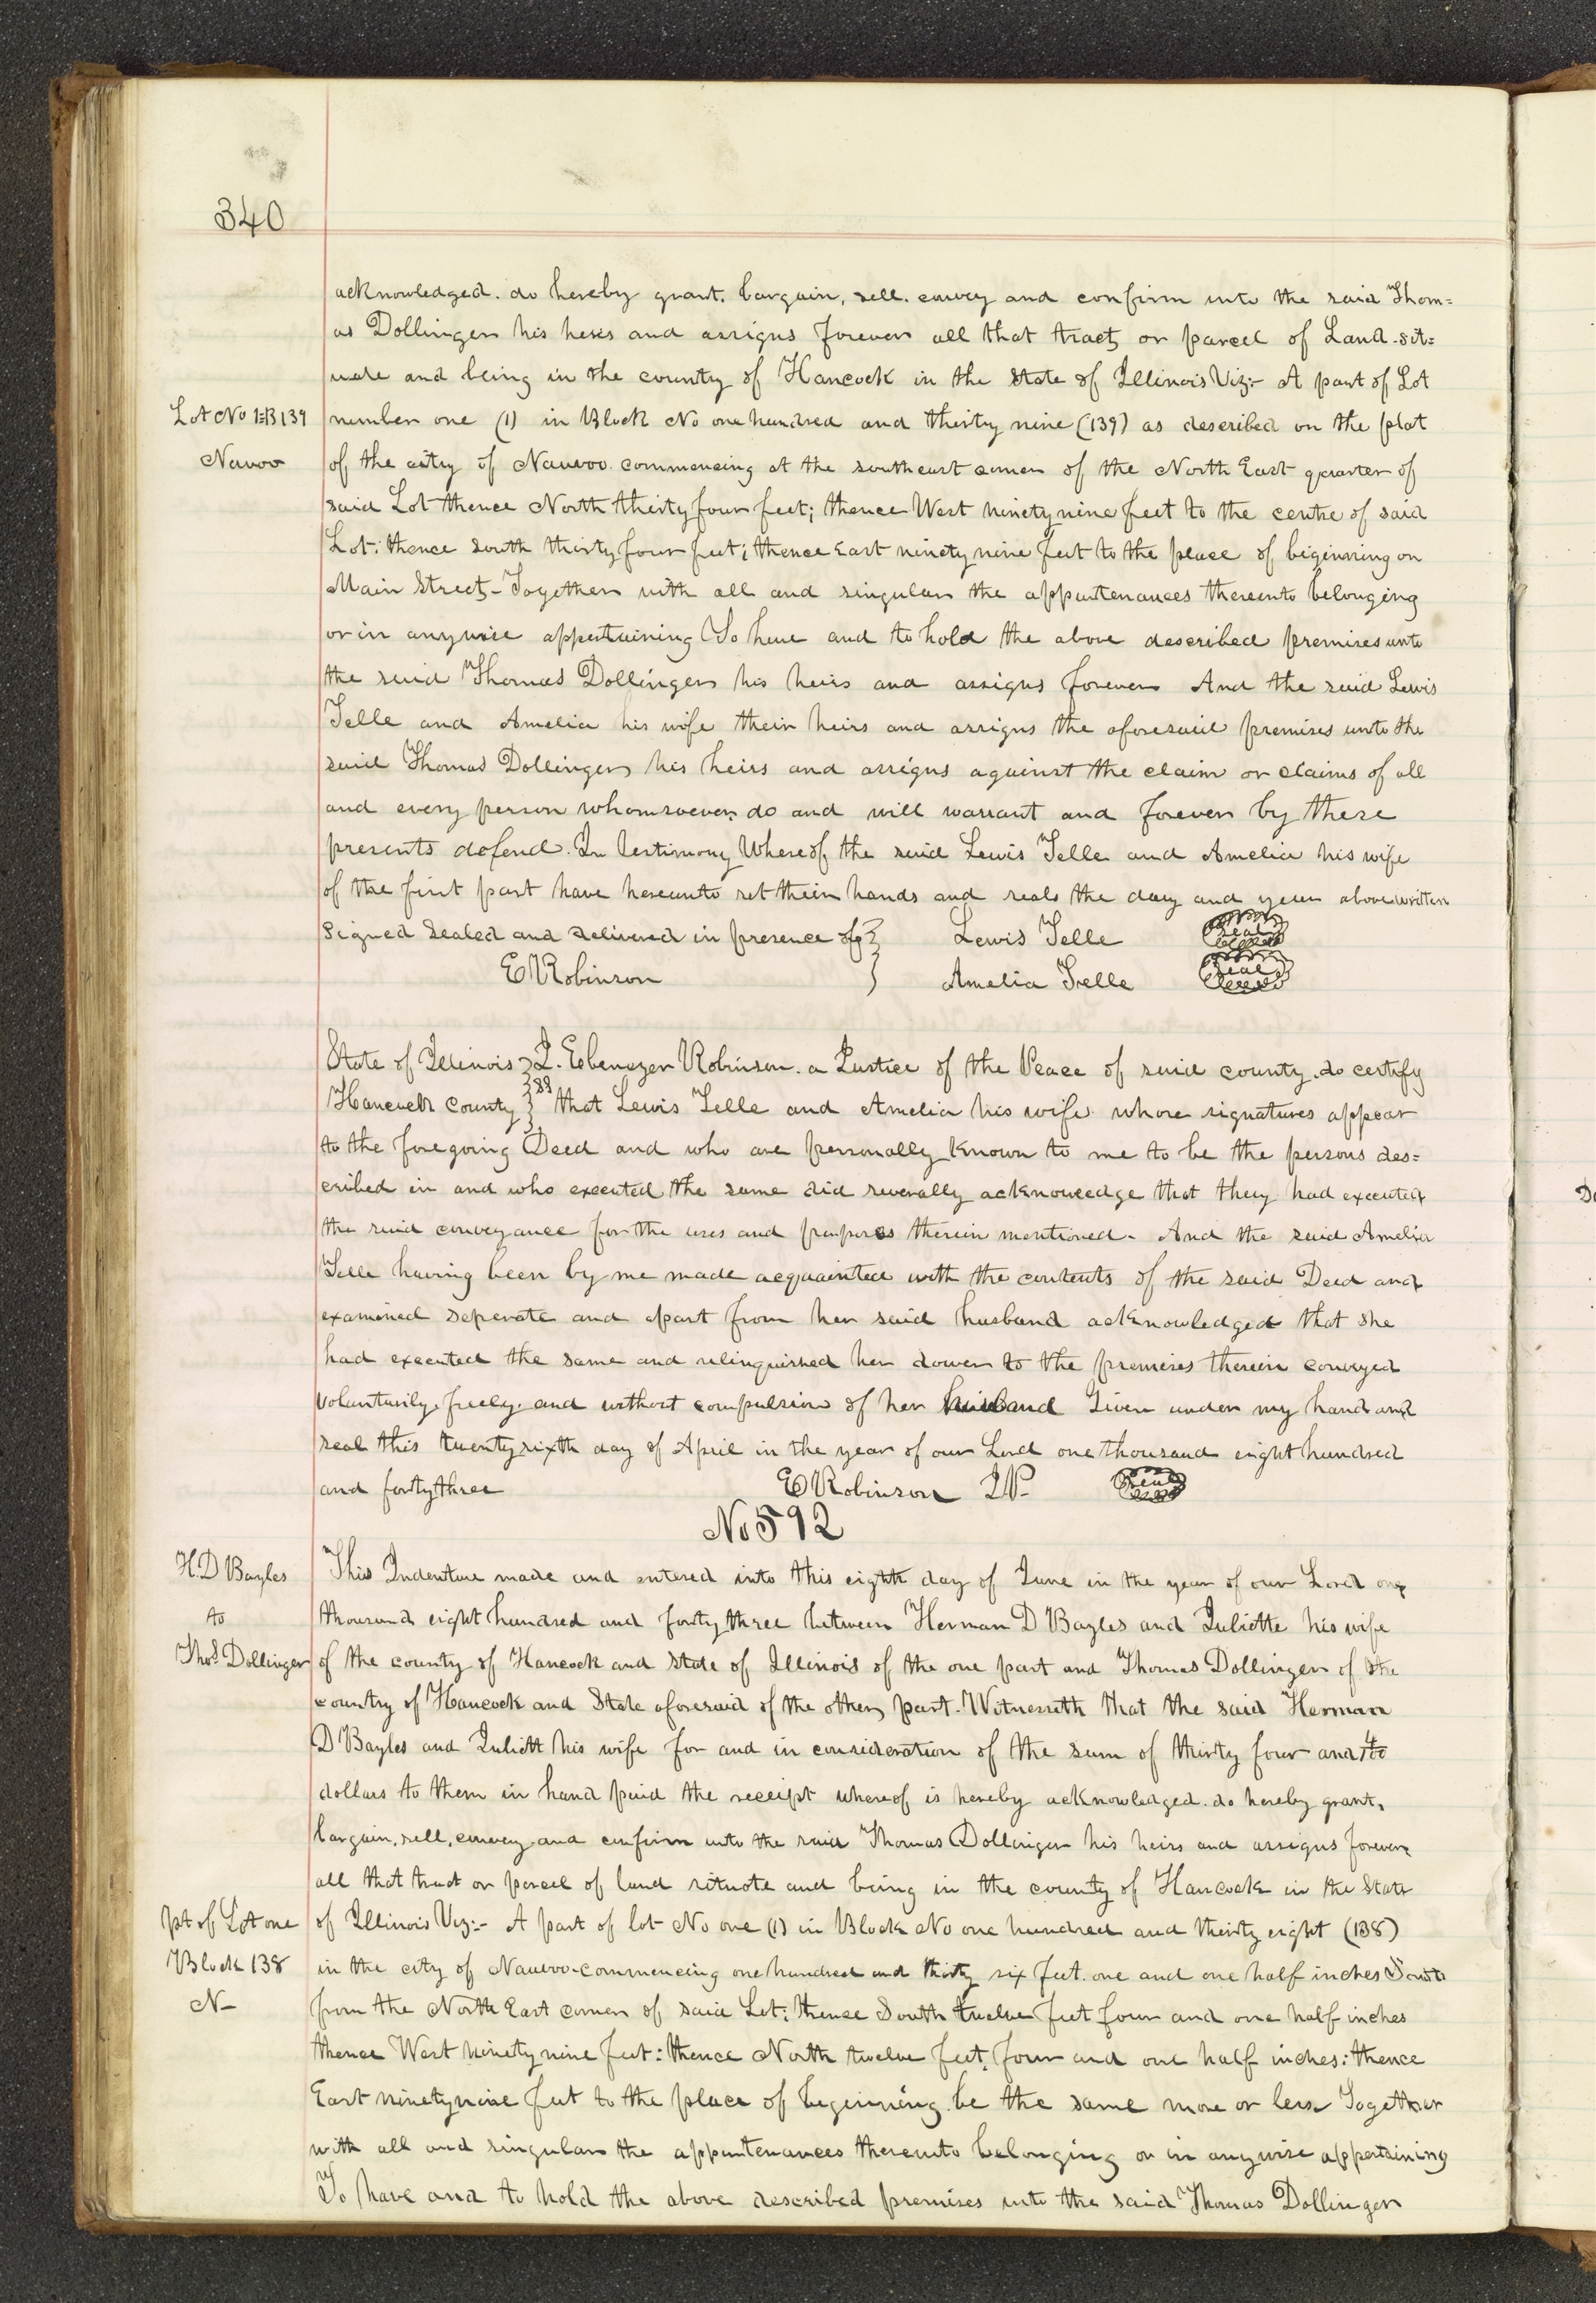 340
acknowledged. do hereby grant. bargain, sell. convey and confirm unto the said Thom=
as Dollinger his heirs and assigns forever all that tract or parcel of Land. sit=
uate and being in the county of Hancock in the State of Illinois Viz:- A part of Lot
Lot No 1=B 139 number one (1) in Block No one hundred and thirty nine (139) as described on the plat
Nauvoo of the city of Nauvoo. commencing at the southeast corner of the North East quarter of
said Lot thence North thirty four feet; thence West ninety nine feet to the centre of said
Lot: thence south thirty four feet; thence East ninety nine feet to the place of beginning on
Main Street- Together with all and singular the appurtenances thereunto belonging
or in anywise appertaining To have and to hold the above described premises unto
the said Thomas Dollinger his heirs and assigns forever And the said Lewis
Telle and Amelia his wife their heirs and assigns the aforesaid premises unto the
said Thomas Dollinger his heirs and assigns against the claim or claims of all
and every person whomsoever, do and will warrant and forever by these
presents defend. In testimony Whereof the said Lewis Telle and Amelia his wife
of the first part have hereunto set their hands and seals the day and year above written
Signed Sealed and delivered in presence of } Lewis Telle seal
E Robinson } Amelia Telle seal
State of Illinois } I. Ebenezer Robinson. a Justice of the Peace of said county. do certify
Hancock County } ss that Lewis Telle and Amelia his wife whose signatures appear
to the foregoing Deed and who are personally known to me to be the persons des=
cribed in and who executed the same did severally acknowledge that they had executed
the said conveyance for the uses and purposes therein mentioned- And the said Amelia
Telle having been by me made acquainted with the contents of the said Deed and
examined seperate and apart from her said husband acknowledged that she
had executed the same and relinquished her dower to the premises therein conveyed
voluntarily. freely. and without compulsion of her husband Given under my hand and
seal this twenty sixth day of April in the year of our Lord one thousand eight hundred
and forty three E Robinson J.P. seal
No 592
H. D Bayles This Indenture made and entered into this eighth day of June in the year of our Lord one
to thousand eight hundred and forty three between Herman D Bayles and Juliette his wife
Thos Dollinger of the county of Hancock and State of Illinois of the one part and Thomas Dollinger of the
country of Hancock and State aforesaid of the other, part. Witnesseth that the said Herman
D Bayles and Juliett his wife for and in consideration of the sum of thirty four and
dollars to them in hand paid the receipt whereof is hereby acknowledged. do hereby grant,
bargain, sell, convey and confirm unto the said Thomas Dollinger his heirs and assigns forever
all that tract or parcel of land situate and being in the county of Hancock in the State
pt of Lot one of Illinois Viz:- A part of lot No one (1) in Block No one hundred and thirty eight (138)
Block 138 in the city of Nauvoo. commencing one hundred and thirty six feet. one and one half inches South
N- from the North East corner of said Lot: thence South twelve feet four and one half inches
thence West ninety nine feet: thence North twelve feet four and one half inches: thence
East ninety nine feet to the place of beginning. be the same more or less Together
with all and singular the appurtenances thereunto belonging or in anywise appertaining
To have and to hold the above described premises unto the said Thomas Dollinger